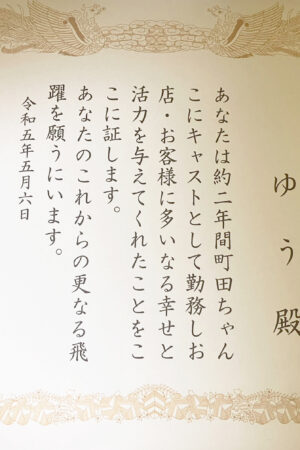 ゆう殿
あなたは約二年間町田ちゃん
こにキャストとして勤務しお
店・お客様に多いなる幸せと
活力を与えてくれたことをこ
こに証します。
あなたのこれからの更なる飛
躍を願うにいます。
令和五年五月六日